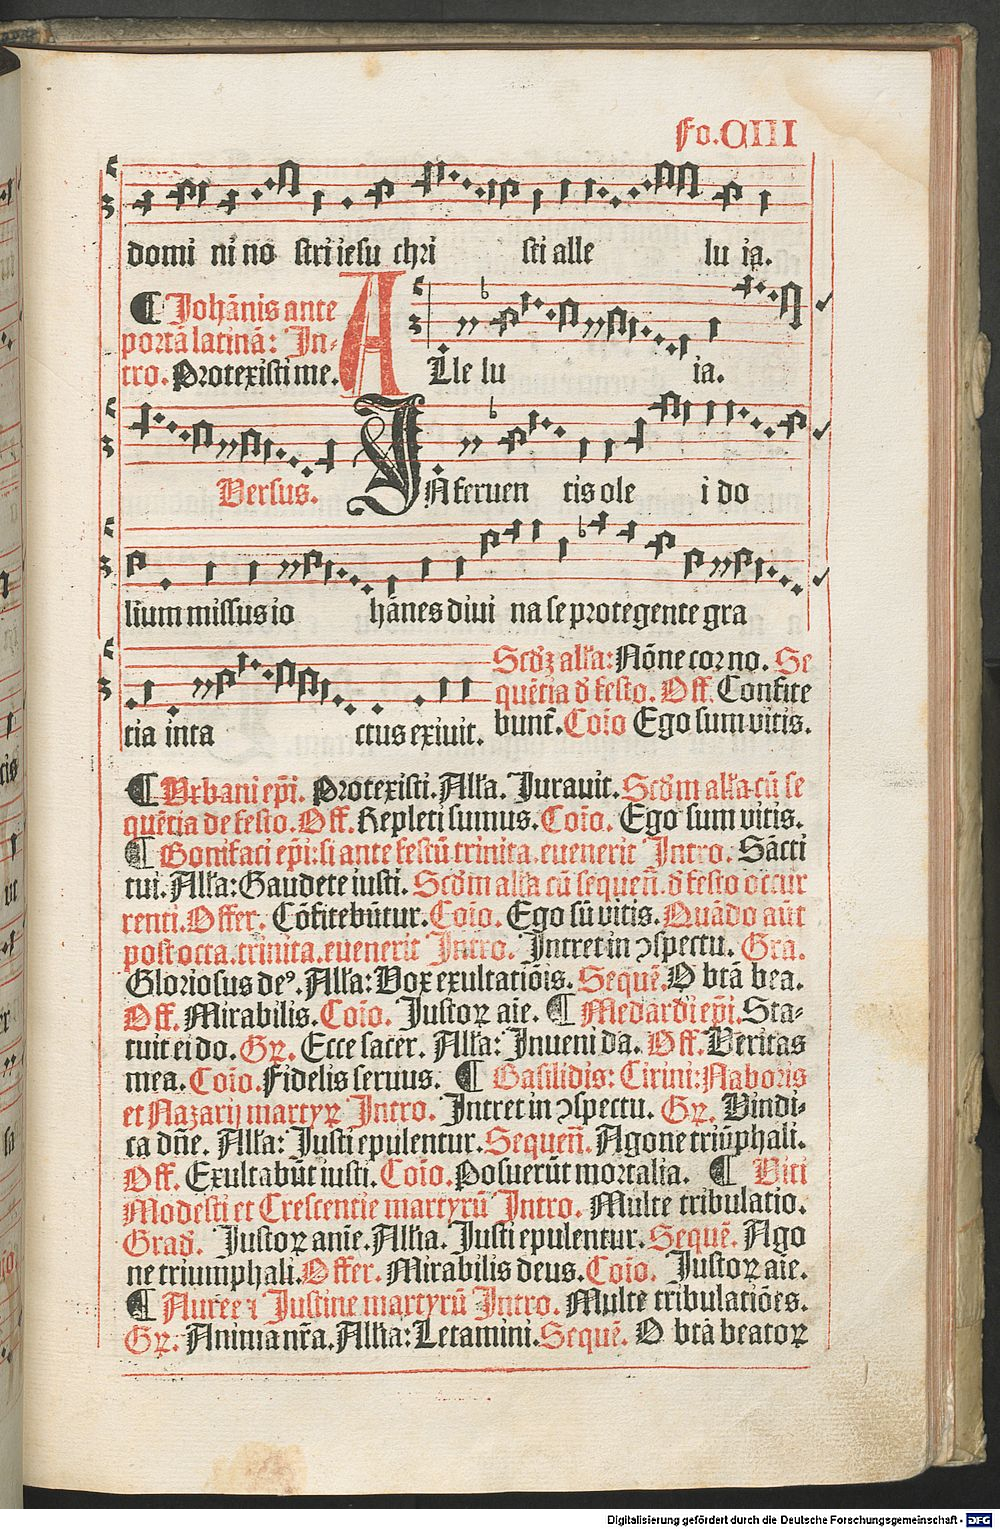 Fo.CIII
domi ni no stri iesu chri sti alle lu ia.
¶ Johānis ante
portā latinā: In-
tro. Protexisti me.
ALle lu ia.
Versus. IN feruen tis ole i do
lium missus io hānes diui na se protegente gra
tia inta ctus exiuit.
Scd'ꝫ all'a: Nōne cor no. Se
quētia d' festo. Off. Confite
bunt̄. Coīo Ego sum vitis.
¶ Vrbani ep̄i. Protexisti. All'a. Jurauit. Scd'm all'a cū se
quētia de festo. Off. Repleti sumus. Coīo. Ego sum vitis.
¶ Bonifaci ep̄i: si ante festū trinita. euenerit Intro. Sācti
tui. All'a: Gaudete iusti. Scd'm all'a cū sequen̄. d' festo occur
renti. Offer. Cōfitebūtur. Coīo. Ego sū vitis. Quādo aūt
post octa. trinita. euenerit Intro. Intret in ꝯspectu. Gra.
Gloriosus deꝰ. All'a: Vox exultatiōis. Sequē. O btā bea.
Off. Mirabilis. Coīo. Justoꝝ aīe. ¶ Medardi ep̄i. Sta-
tuit ei do. Gꝝ. Ecce sacer. All'a: Inueni da. Off. Veritas
mea. Coīo. Fidelis seruus. ¶ Basilidis: Cirini: Naboris
et Nazarij martyꝝ Intro. Intret in ꝯspectu. Gꝝ. Vindi-
ca dn̄e. All'a: Justi epulentur. Sequen̄. Agone triūphali.
Off. Exultabūt iusti. Coīo. Posuerūt mortalia. ¶ Viti
Modesti et Crescentie martyrū Intro. Multe tribulatio.
Grad'. Justoꝝ anīe. All'ia. Justi epulentur. Sequē. Ago
ne triumphali. Offer. Mirabilis deus. Coīo. Justoꝝ aīe.
¶ Auree ⁊ Justine martyrū Intro. Multe tribulatiōes.
Gꝝ. Anima nr̄a. All'ia: Letamini. Sequē. O btā beatoꝝ
Digitalisierung gefördert durch die Deutsche Forschungsgemeinschaft - DFG